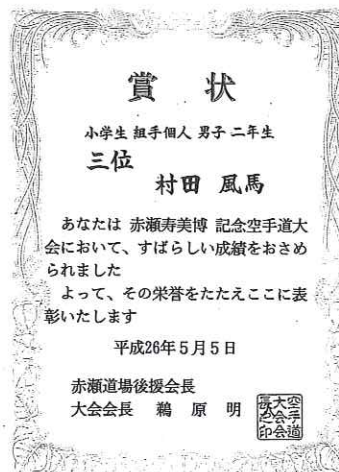 賞 状
小学生 組手個人 男子 二年生
三位
村田 風馬
あなたは 赤瀬寿美博 記念空手道大
会において、すばらしい成績をおさめ
られました
よって、その栄誉をたたえここに表
彰いたします
平成26年5月5日
赤瀬道場後援会長
大会会長 鵜原 明
空手道
大会会
長之印